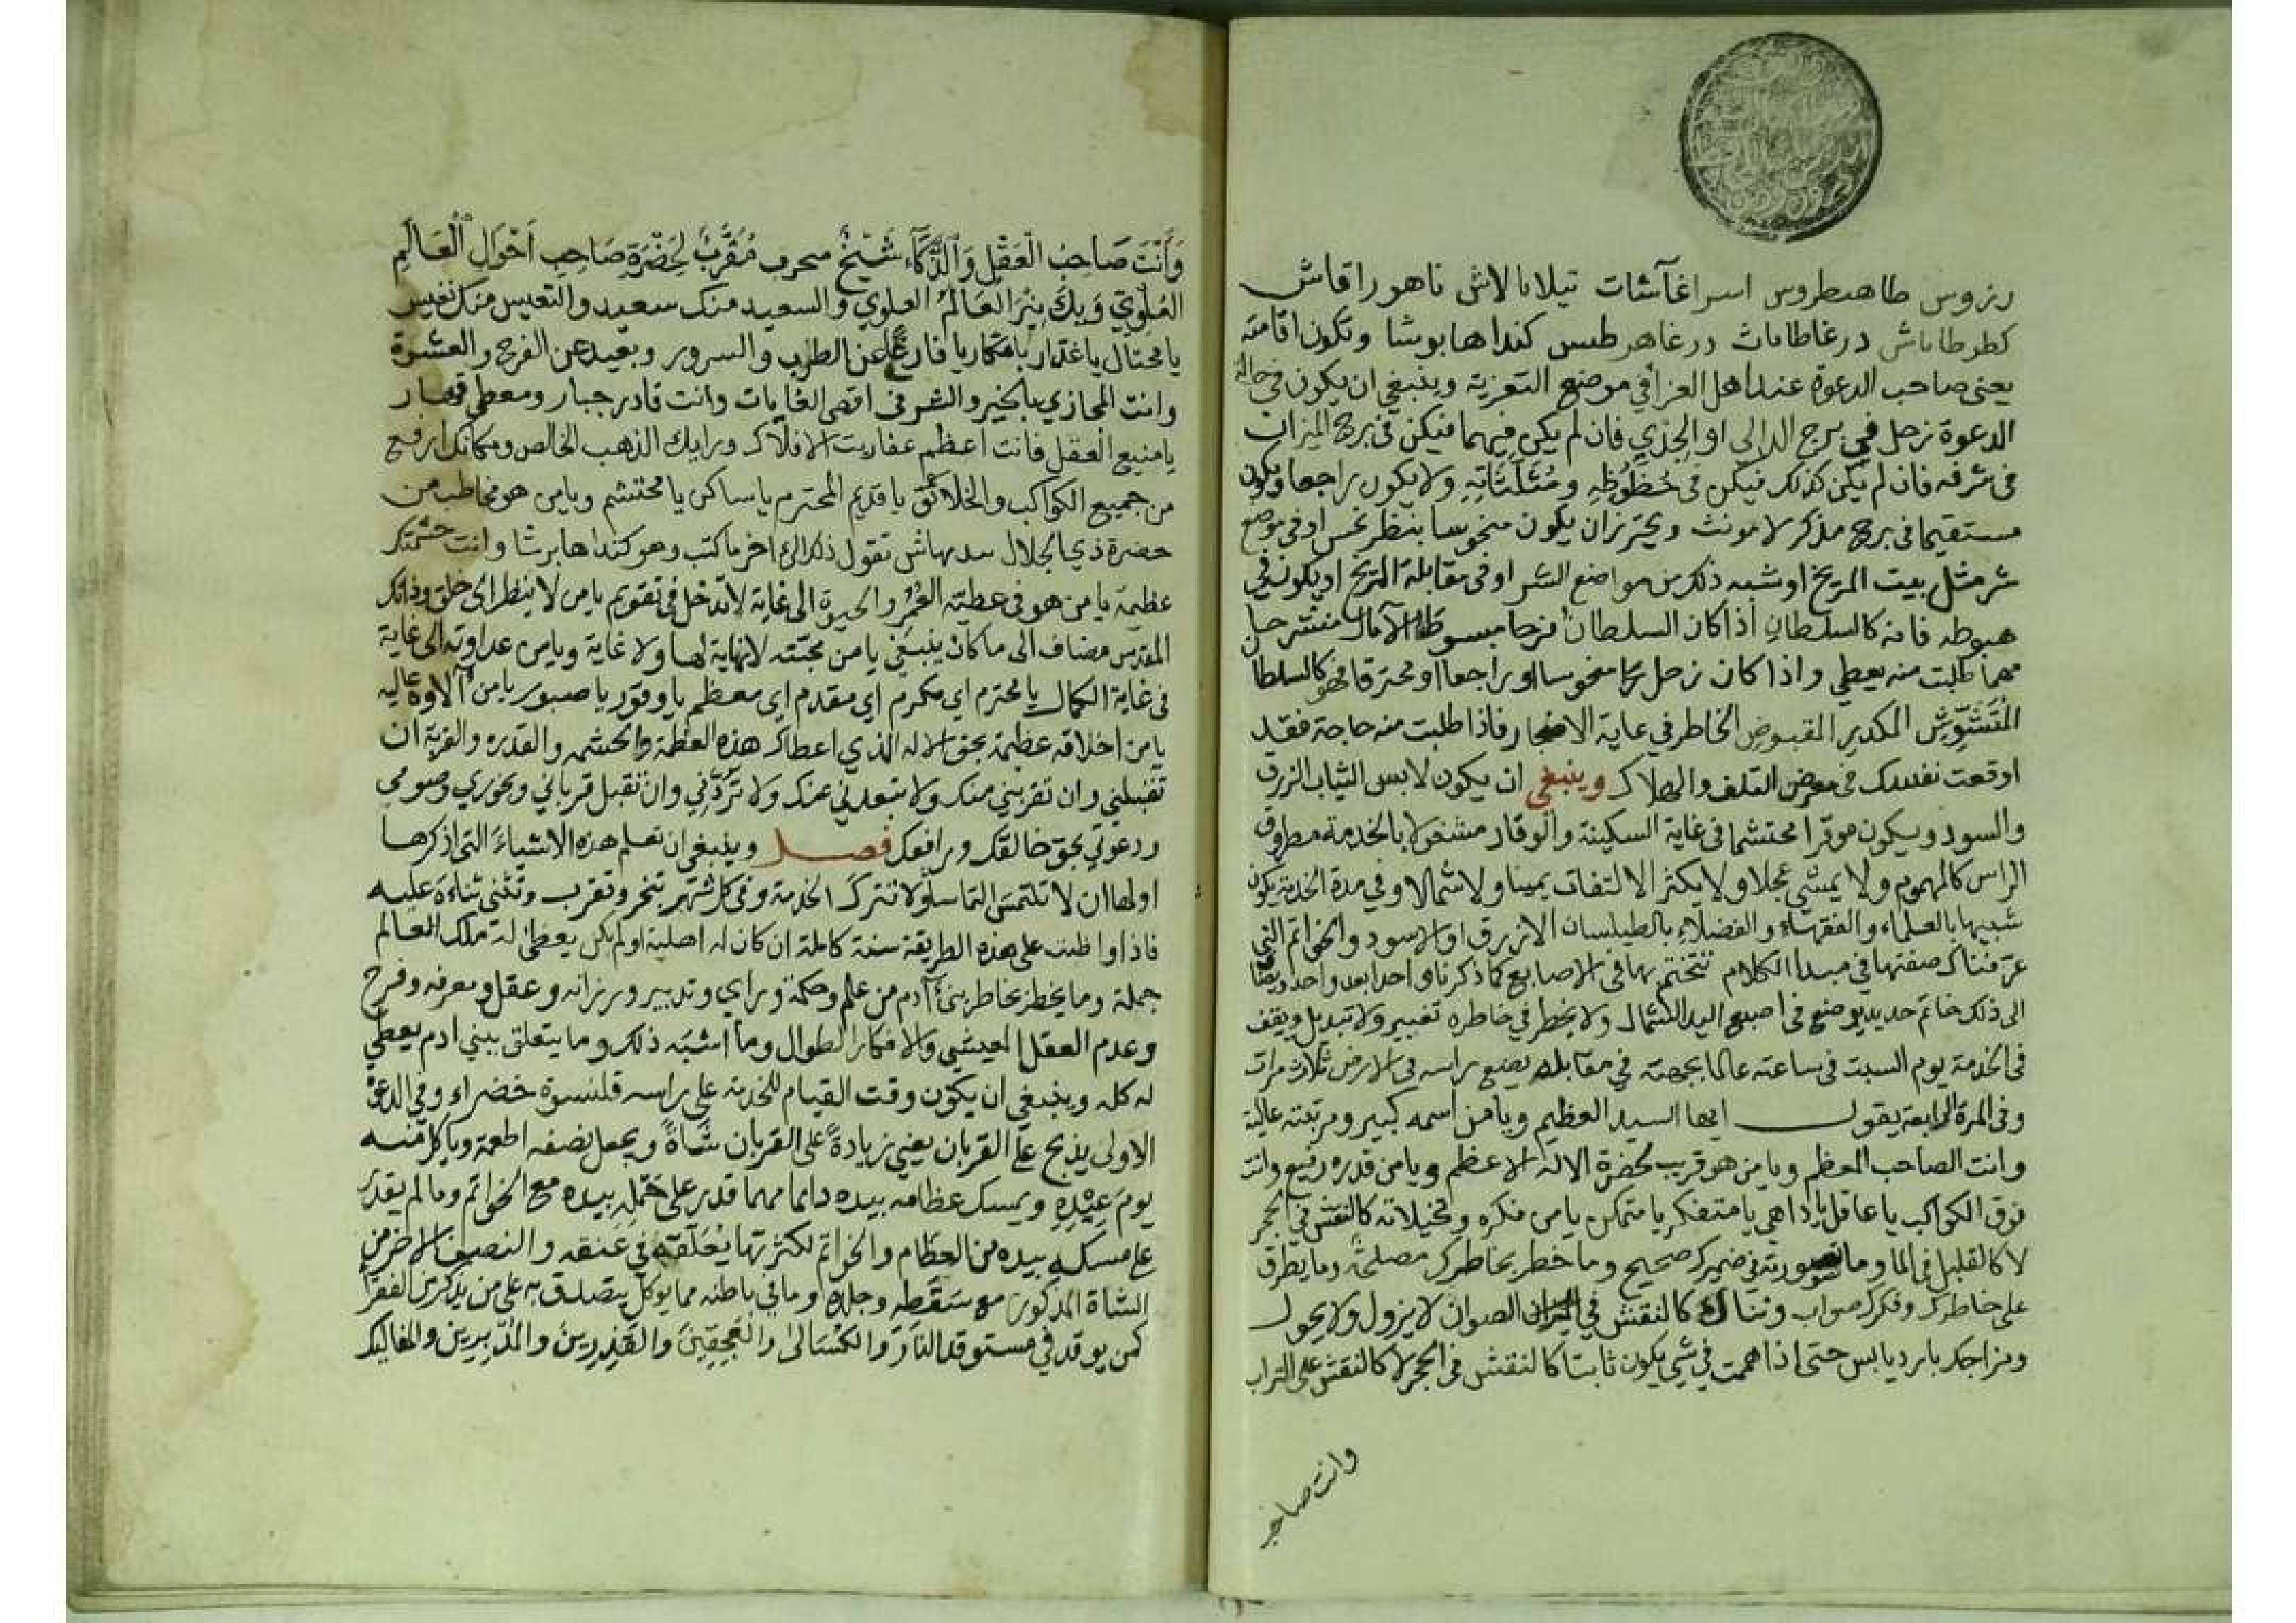 رزوس طاهطروس اسراغآشات تيلانالاش ناهوراقاش
كطرطاناش درغاطاناث درغاهرطس كنداهابوشا وتكون اقامته
يعنى صاحب الدعوة عند اهل العزا في موضع التعزية وينبغي ان يكون في حالة
الدعوة زحل في برج الدالى او الجدي فان لم يكن فيهما فيكن فى برج الميزان
فى شرفه فان لم يكن كذلك فيكن فى حظوظه ومثلثاته ولا يكون راجعا ويكون
مستقيما فى برج مذكر لا مونث ويحترز ان يكون منحوسا بنظر نحس او فى موضع
شر مثل بيت المريخ او شبه ذلك من مواضع الشر او فى مقابلة المريخ او يكون في
هبوطه فانه كالسلطان اذا كان السلطان فرحا مبسوط الآمال منشرحا
مهما طلبت منه يعطي واذا كان زحل منحوسا او راجعا او محترقا فهو كالسلطا
المتشوش المكدر المقبوض الخاطر في غاية الاضجار فاذا طلبت منه حاجة فقد
اوقعت نفسك فى معرض التلف والهلاك وينبغي ان يكون لابس الثياب الزرق
والسود ويكون موقرا محتشما فى غاية السكينة والوقار مشغولا بالخدمة مطروق
الراس كالمهموم ولا يمشي عجلا ولا يكثر الالتفات يمينا ولا شمالا وفي مدة الخدمة يكون
شبيها بالعلماء والفقهاء والفضلاء بالطيلسان الازرق او الاسود والخواتم التي
عرفناك صفتها في مبدا الكلام تتختم بها فى الاصابع كما ذكرنا واحدا بعد واحد ويضا
الى ذلك خاتم حديد يوضع فى اصبع اليد الشمال ولا يخطر في خاطره تغيير ولا تبديل ويقف
فى الخدمة يوم السبت فى ساعته عالما بجهته في مقابله يضع راسه فى الارض ثلاث مرات
وفى المرة الرابعة يقول ايها السيد العظيم ويا من اسمه كبير ومرتبته عالية
وانت الصاحب المعظم ويا من هو قريب لحضرة الاله الاعظم ويا من قدره رفيع وانت
فوق الكواكب يا عاقل يا داهي يا متفكر يا متمكن يا من فكره ومخيلاته كالنقش في الحجر
لا كالقليل فى الما وما تصورته في ضميرك صحيح وما خطر بخاطرك مصلحة وما يطرق
على خاطرك وفكرك صواب وثناك كالنقش في الصوان لا يزول ولا يحول
ومزاجك بارد يابس حتى اذا هممت في شي يكون ثابتا كالنقش فى الحجر لا كالنقش على التراب
وانت صاحب
وَأَنْتَ صَاحِبُ الْعَقْلِ وَالذَّكَاءِ شَيْخٌ مجرب مُقَرَّبٌ لِحَضْرَةِ صَاحِبِ أَحْوَالِ الْعَالَمِ
العُلْوِيِّ وَبِكَ يُنِيرُ العَالَمُ العلوي والسعيد منك سعيد والتعيس منك تعيس
يا محتال يا غدار يا مكار يا فارغا عن الطرب والسرور وبعيد عن الفرح والعشرة
وانت المجازي بالخير والشر فى اقصى الغايات وانت قادر جبار ومعطي قهار
يا منبع العقل فانت اعظم عفاريت الافلاك ورايك الذهب الخالص ومكانك ارفع
من جميع الكواكب والخلائق يا قديم المحترم يا ساكن يا محتشم ويا من هو مخاطب من
حضرة ذي الجلال سدبهاش تقول ذلك الى اخر ما كتب وهو كنداهابرشا وانت حشمتك
عظيمة يا من هو فى عطيته العُمْر والحيوة الى غاية لا تدخل في تقويم يا من لا ينظر الى خلق وذاتك
المقدس مضاف الى ما كان ينبغي يا من محبته لا نهاية لها ولا غاية ويا من عداوته الى غاية
فى غاية الكمال يا محترم اي مكرم اي مقدم اى معظم يا وقور يا صبور يا من آلاوه عاليه
يا من اخلاقه عظيمة بحق الاله الذي اعطاك هذه العظمة والحشمه والقدره والقربة ان
تقبلني وان تقربني منك ولا تبعدني عنك ولا تردني وان تقبل قرباني وبخوري وصومي
ودعوتي بحق خالقك ورافعك فصل وينبغي ان تعلم هذه الاشياء التى اذكرها
اولها ان لا تلتمس التماسا ولا تترك الخدمة وفى كل شهر تبخر وتقرب وتثنى ثناءه عليه
فاذا واظبت على هذه الطريقة سنة كاملة ان كان له اهلية او لم يكن يعطى له ملك العالم
جملة وما يخطر بخاطر بنى آدم من علم وحكمة وراي وتدبير ورزانه وعقل ومعرفه وفرح
وعدم العقل المعيشي والافكار الطوال وما اشبه ذلك وما يتعلق ببني ادم يعطي
له كله وينبغي ان يكون وقت القيام للخدمة على راسه قلنسوة خضراء وفي الدعوة
الاولى يذبح على القربان يعني زيادة على القربان شاة ويجعل نصفه اطعمة وياكل منه
يوم عيده ويمسك عظامه بيده دائما مهما قدر على حمله بيده مع الخواتم وما لم يقدر
على مسكه بيده من العظام والخواتم لكثرتها يعلقه في عنقه والنصف الاخر من
الشاة المذكورة مع سَقَطِهِ وجلده وما في باطنه مما يوكل يتصدق به على من يذكر من الفقرا
كمن يوقد في مستوقد النار والكسالى والقَذِرِينَ والمُدْبِرِين والمفاليك